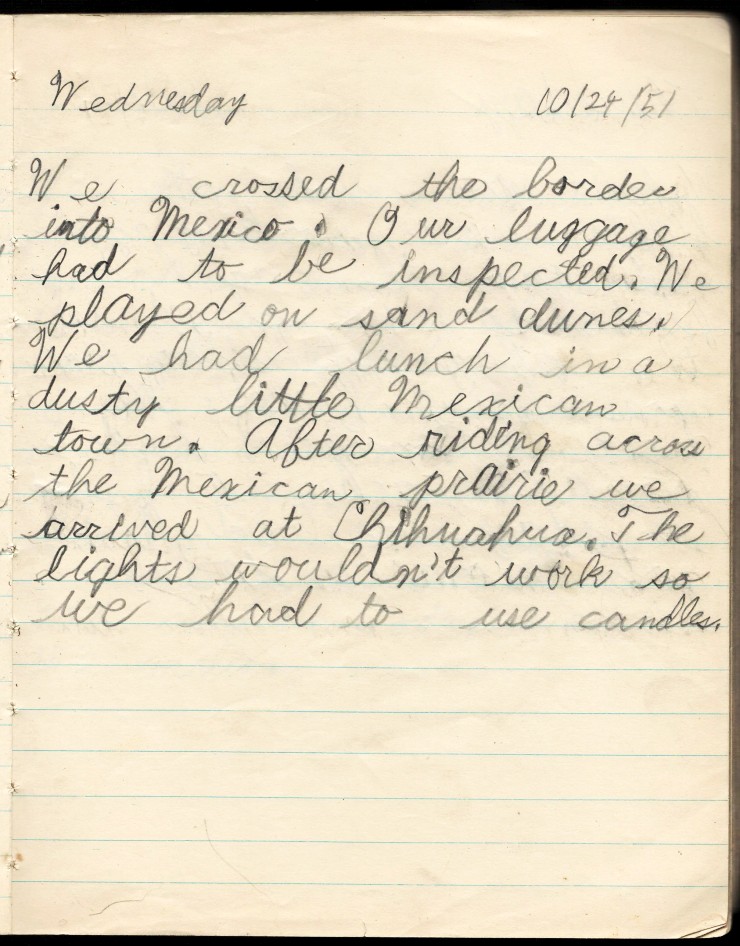 Wednesday 10/24/51
We crossed the border
into Mexico. Our luggage
had to be inspected. We
played on sand dunes.
We had lunch in a
dusty little Mexican
town. After riding across
the Mexican prairie we
arrived at Chihuahua. The
lights wouldn't work so
we had to use candles.